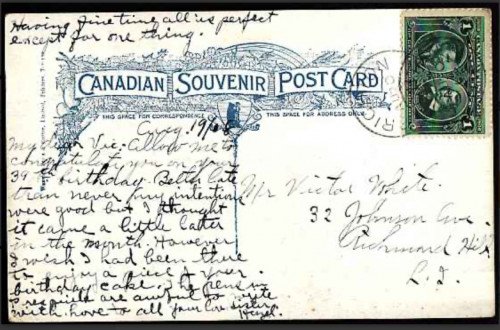 Having fine time all is perfect
except for one thing.
CANADIAN SOUVENIR POST CARD
THIS SPACE FOR CORRESPONDENCE
THIS SPACE FOR ADDRESS ONLY
Aug 19/08
My dear Vic. Allow me to
congratulate you on your
39th birthday. Better late
than never my intentions
were good but I thought
it came a little later
in the month. However
I wish I had been there
to enjoy a piece of your
birthday cake. The pens in
are awful to write
with. Love to all your lov. sister
Hazel.
Mr Victor White.
32 Johnson Ave.
Richmond Hill
L. I.
1 1